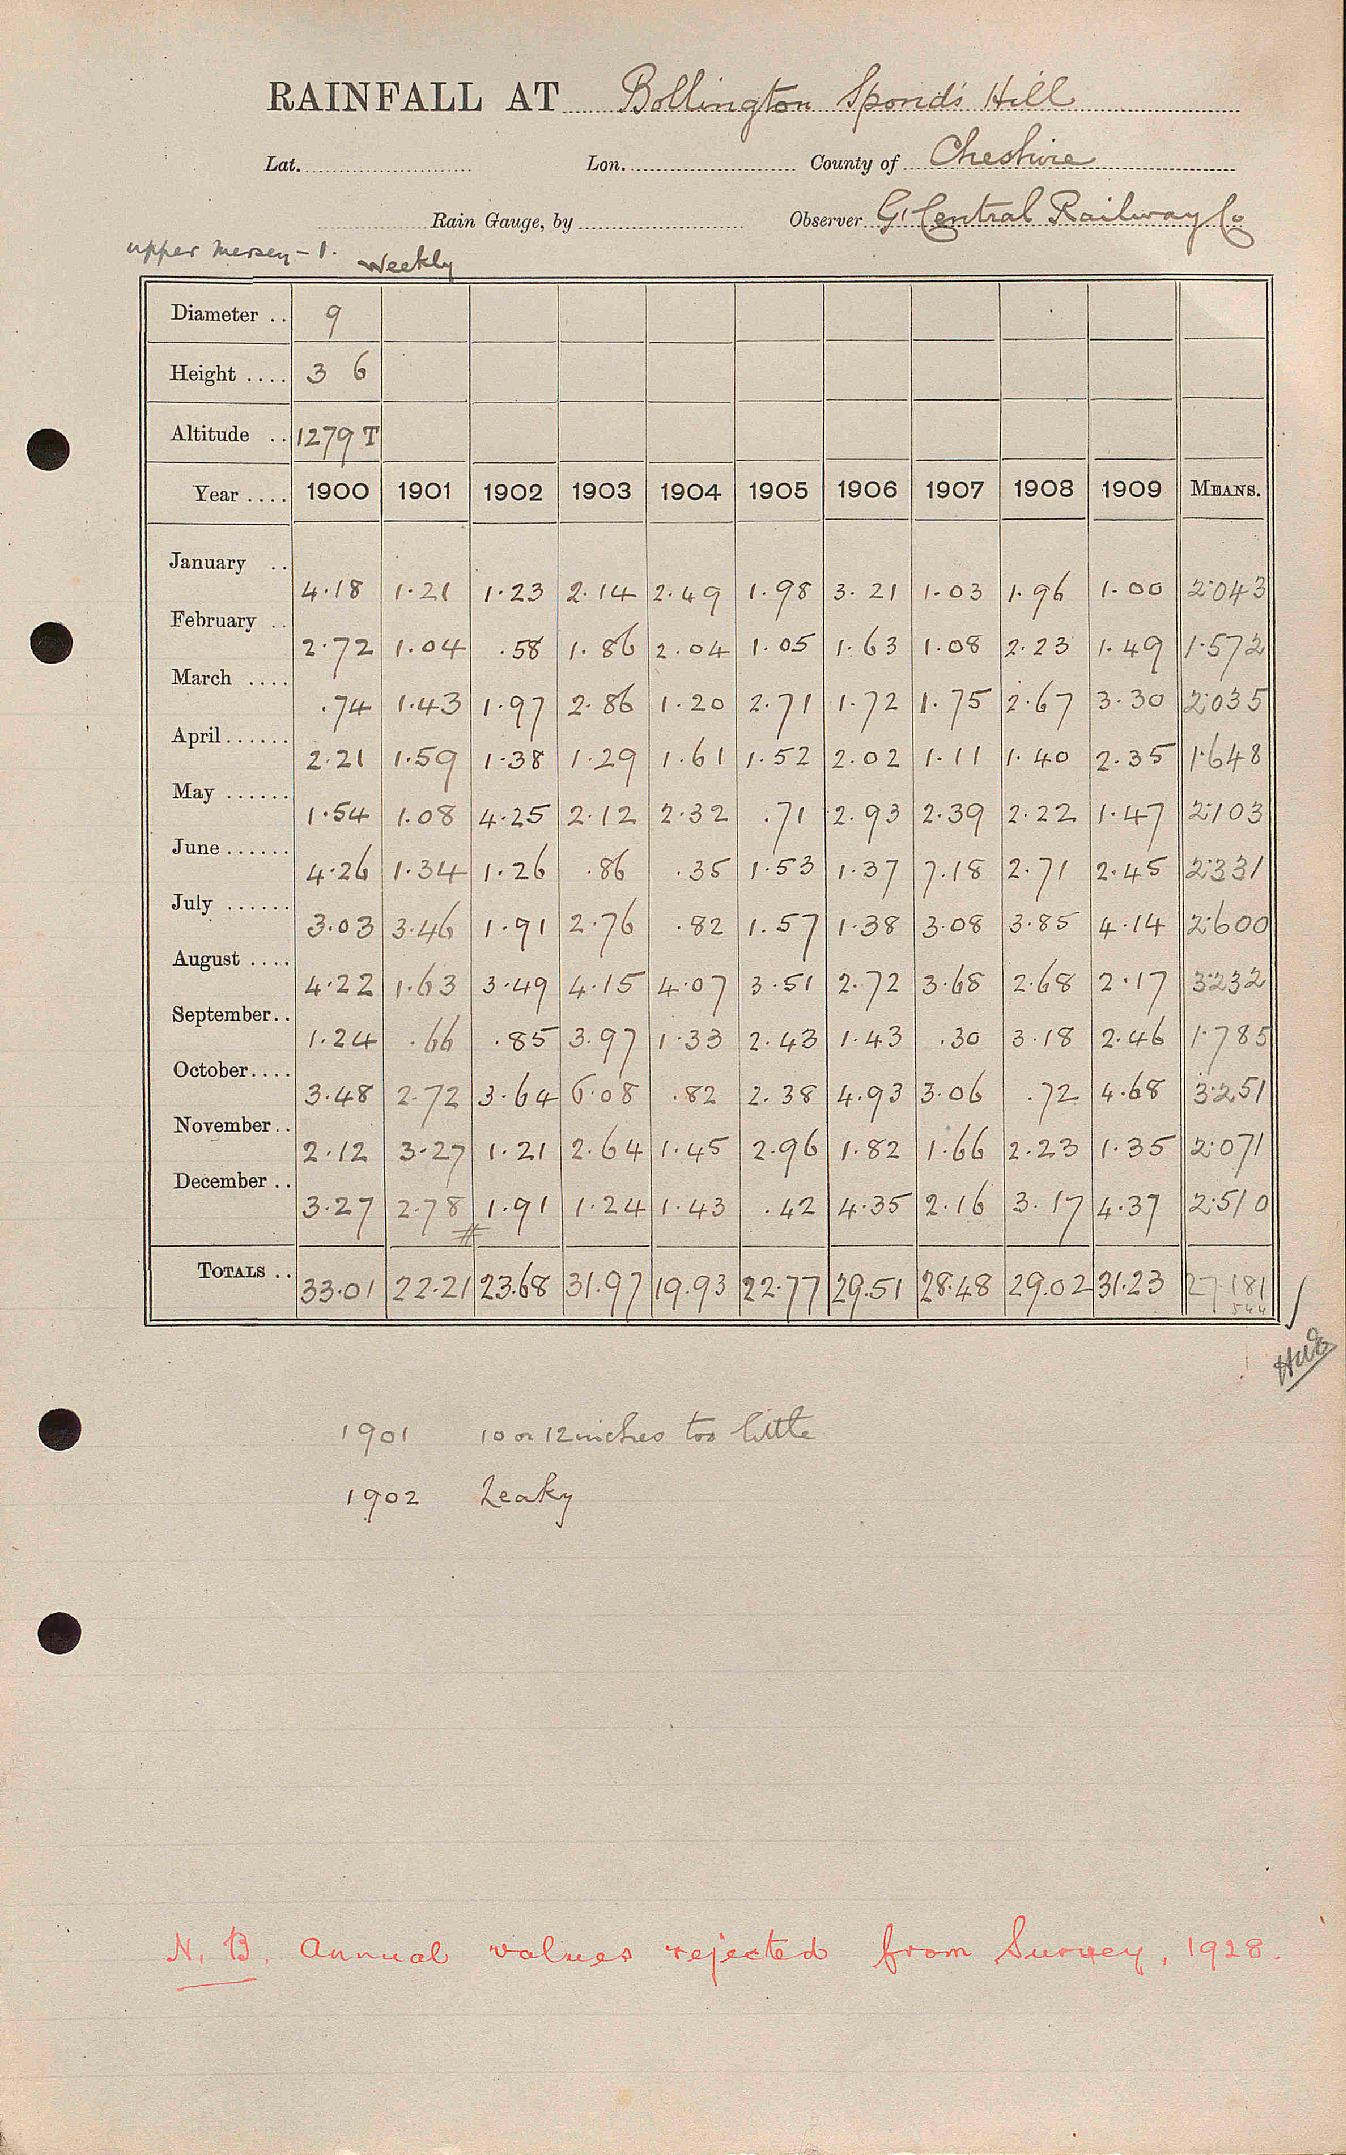 RAINFALL AT Bollington Sponds Hill
Lat. Lon. County of Cheshire
Rain Gauge, by Observer Gt Central Railway Co
upper Mersey - 1. Weekly
Diameter .. 9
Height .... 3 6
Altitude .. 1279 T
Year .... 1900 1901 1902 1903 1904 1905 1906 1907 1908 1909 MEANS.
January .. 4.18 1.21 1.23 2.14 2.49 1.98 3.21 1.03 1.96 1.00 2.043
February .. 2.72 1.04 .58 1.86 2.04 1.05 1.63 1.08 2.23 1.49 1.572
March .... .74 1.43 1.97 2.86 1.20 2.71 1.72 1.75 2.67 3.30 2.035
April...... 2.21 1.59 1.38 1.29 1.61 1.52 2.02 1.11 1.40 2.35 1.648
May ...... 1.54 1.08 4.25 2.12 2.32 .71 2.93 2.39 2.22 1.47 2.103
June...... 4.26 1.34 1.26 .86 .35 1.53 1.37 7.18 2.71 2.45 2.331
July ...... 3.03 3.46 1.91 2.76 .82 1.57 1.38 3.08 3.85 4.14 2.600
August .... 4.22 1.63 3.49 4.15 4.07 3.51 2.72 3.68 2.68 2.17 3.232
September.. 1.24 .66 .85 3.97 1.33 2.43 1.43 .30 3.18 2.46 1.785
October.... 3.48 2.72 3.64 6.08 .82 2.38 4.93 3.06 .72 4.68 3.251
November.. 2.12 3.27 1.21 2.64 1.45 2.96 1.82 1.66 2.23 1.35 2.071
December .. 3.27 2.78 1.91 1.24 1.43 .42 4.35 2.16 3.17 4.37 2.510
#
TOTALS .. 33.01 22.21 23.68 31.97 19.93 22.77 29.51 28.48 29.02 31.23 27.181
544
1901 10 or 12 inches too little
1902 Leaky
N.B. Annual values rejected from Survey, 1928.